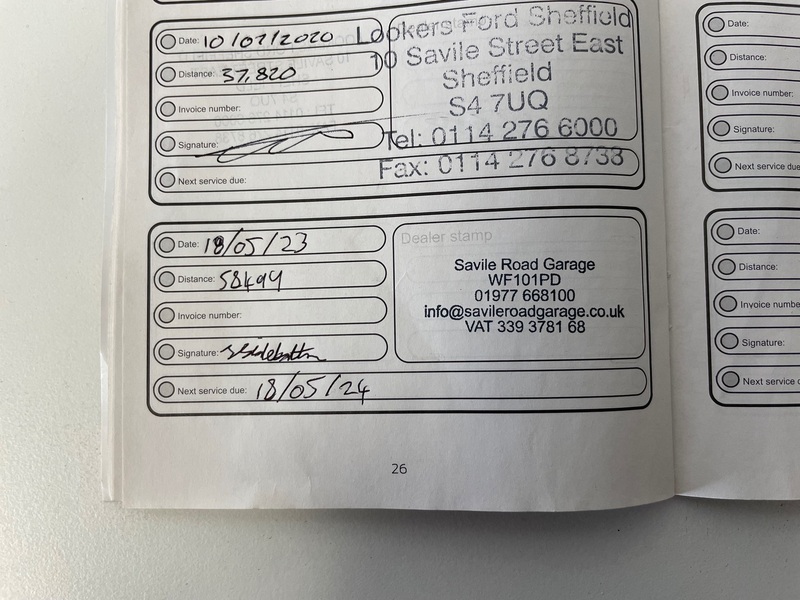 Date: 10/07/2020
Distance: 37,820
Invoice number:
Signature:
Next service due:
Lookers Ford Sheffield
10 Savile Street East
Sheffield
S4 7UQ
Tel: 0114 276 6000
Fax: 0114 276 8733
Date: 18/05/23
Distance: 58499
Invoice number:
Signature:
Next service due: 18/05/24
Dealer stamp
Savile Road Garage
WF101PD
01977 668100
info@savileroadgarage.co.uk
VAT 339 3781 68
26
Date:
Distance:
Invoice number:
Signature:
Next service due
Date:
Distance:
Invoice numbe
Signature:
Next service